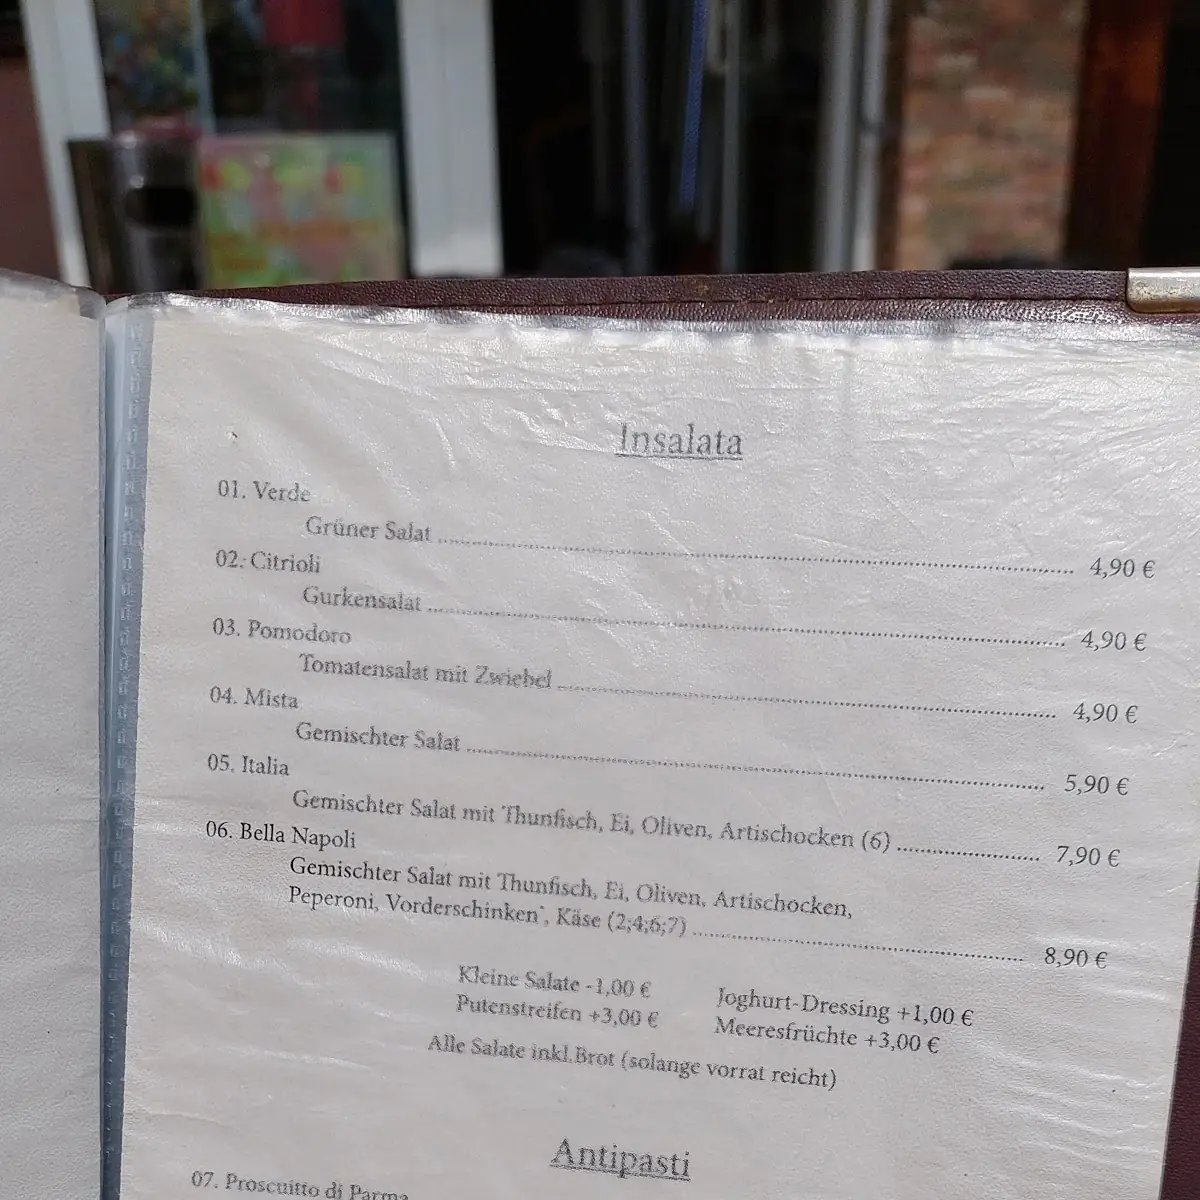 Insalata
01. Verde
Grüner Salat ........ 4,90 €
02. Citrioli
Gurkensalat ........ 4,90 €
03. Pomodoro
Tomatensalat mit Zwiebel ........ 4,90 €
04. Mista
Gemischter Salat ........ 5,90 €
05. Italia
Gemischter Salat mit Thunfisch, Ei, Oliven, Artischocken (6) ........ 7,90 €
06. Bella Napoli
Gemischter Salat mit Thunfisch, Ei, Oliven, Artischocken,
Peperoni, Vorderschinken*, Käse (2;4;6;7) ........ 8,90 €
Kleine Salate -1,00 € Joghurt-Dressing +1,00 €
Putenstreifen +3,00 € Meeresfrüchte +3,00 €
Alle Salate inkl.Brot (solange vorrat reicht)
Antipasti
07. Proscuitto di Parma